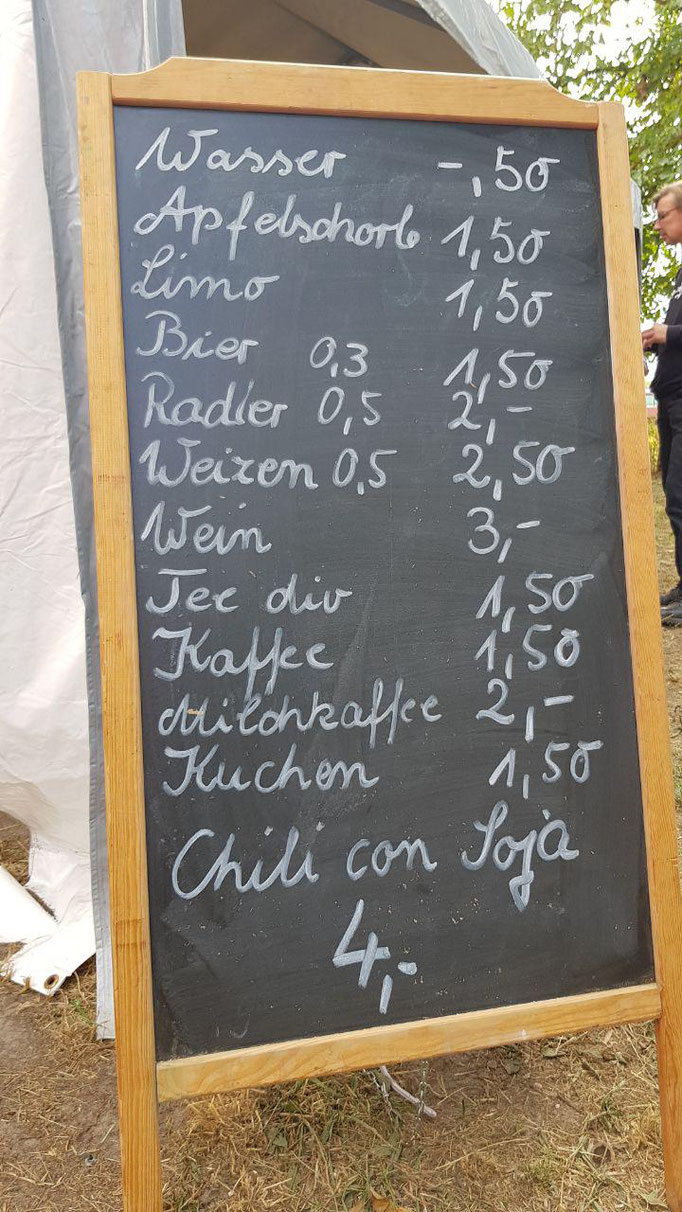 Wasser -,50
Apfelschorle 1,50
Limo 1,50
Bier 0,3 1,50
Radler 0,5 2,-
Weizen 0,5 2,50
Wein 3,-
Tee div 1,50
Kaffee 1,50
Milchkaffee 2,-
Kuchen 1,50
Chili con Soja
4,-